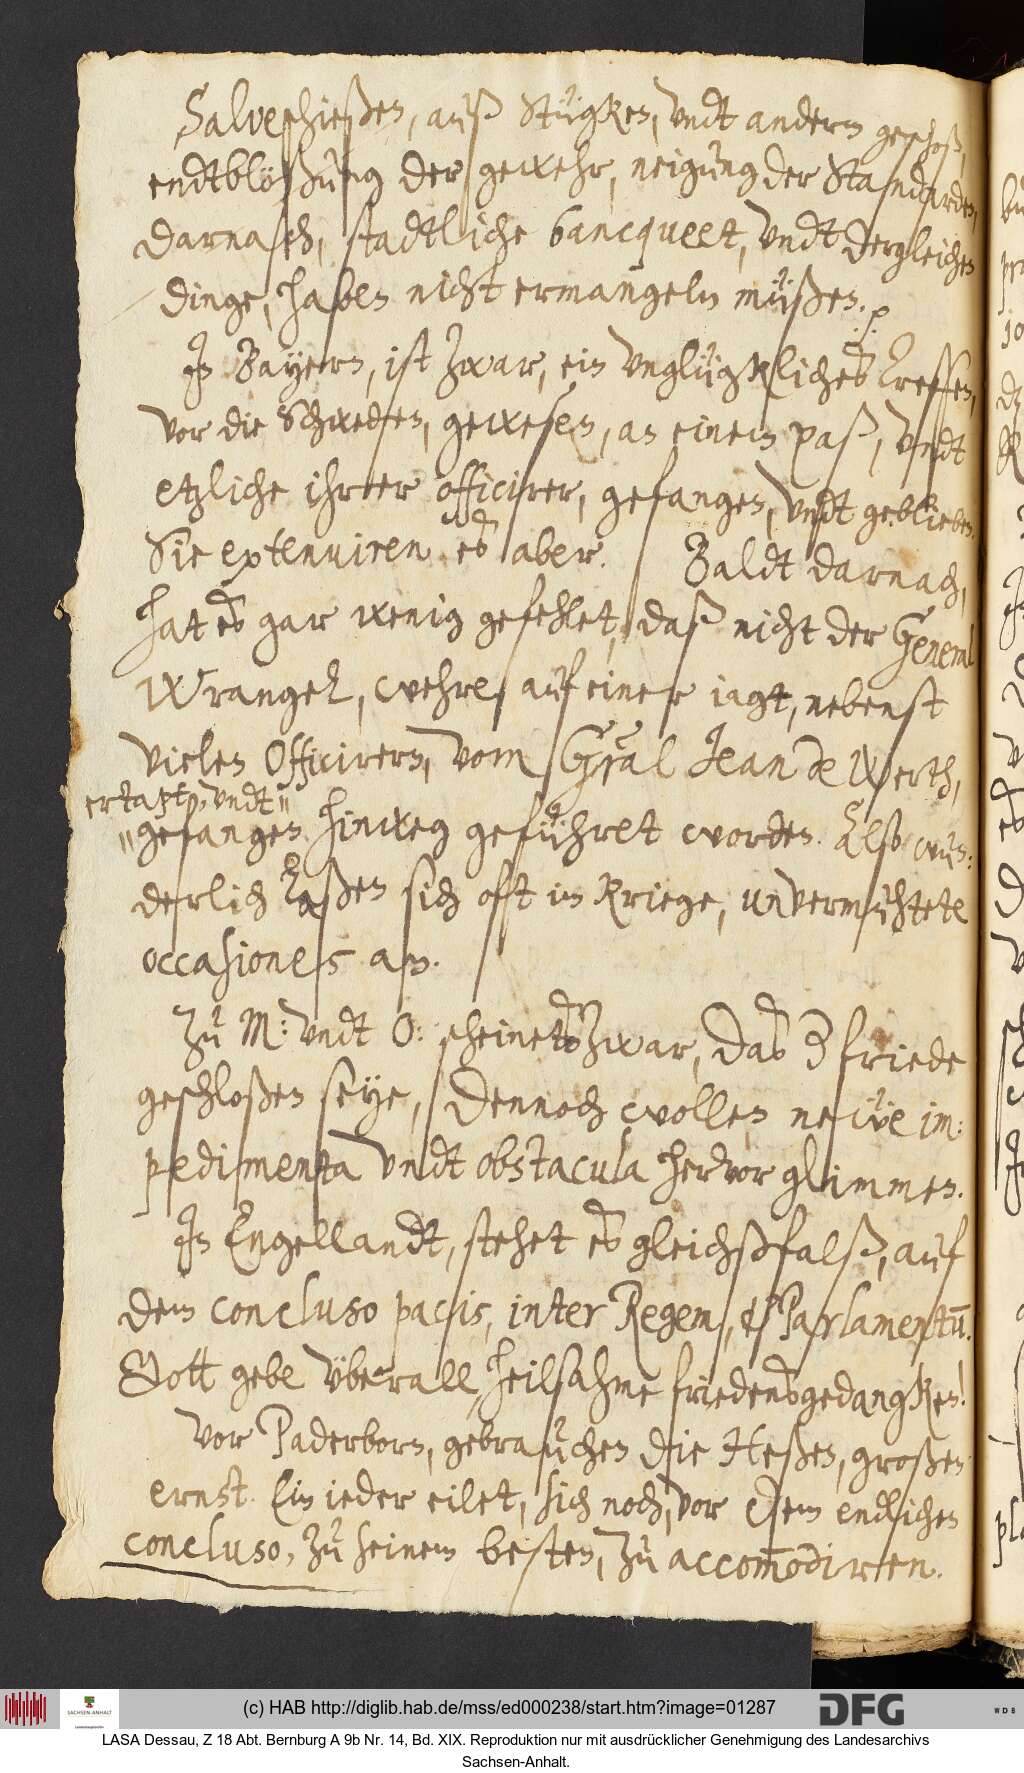 Salveschießen, auß Stügken, vndt andern geschoß,
endtblößung der gewehr, neigung der Standarden,
darnach, stadtliche bancqueet, vndt dergleichen
dinge, haben nicht ermangeln müßen. p
In Bayern, ist zwar, ein vnglügkliches treffen,
vor die Schweden, gewesen, an einem paß, vndt
etzliche ihrer officirer, gefangen, vndt geblieben.
Sie extenuiren es aber. Baldt darnach,
hat es gar wenig gefehlet, daß nicht der General
Wrangel, wehre auf einer iagt, nebenst
vielen Officirern, vom Gral Jean de Werth,
ertapt, vndt"
"gefangen hinweg geführet worden. Also wun:
derlich laßen sich offt im Kriege, unvermuhtete
occasiones an.
Zu M: vndt O: scheinets zwar, das der friede
geschloßen seye, dennoch wollen newe im:
pedimenta vndt obstacula hervor glimmen.
In Engellandt, stehet es gleichßfalß, auf
dem concluso pacis, inter Regem, et Parlamentū.
Gott gebe vberall, heilsahme friedensgedangken!
Vor Paderborn, gebrauchen die Heßen, großen
ernst. Ein ieder eilet, sich noch, vor dem endlichen
concluso, zu seinem besten, zu accom̄odiren.
(c) HAB http://diglib.hab.de/mss/ed000238/start.htm?image=01287
SACHSEN-ANHALT
DFG
WDB
LASA Dessau, Z 18 Abt. Bernburg A 9b Nr. 14, Bd. XIX. Reproduktion nur mit ausdrücklicher Genehmigung des Landesarchivs
Sachsen-Anhalt.